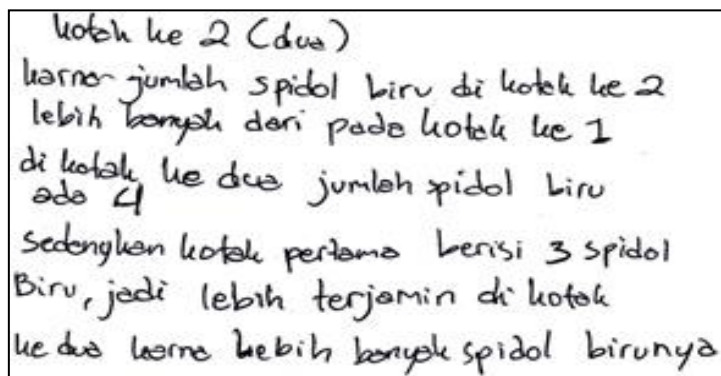 kotak ke 2 (dua)
karna jumlah spidol biru di kotak ke 2
lebih banyak dari pada kotak ke 1
di kotak ke dua jumlah spidol biru
ada 4
sedangkan kotak pertama berisi 3 spidol
Biru, jadi lebih terjamin di kotak
ke dua karna lebih banyak spidol birunya